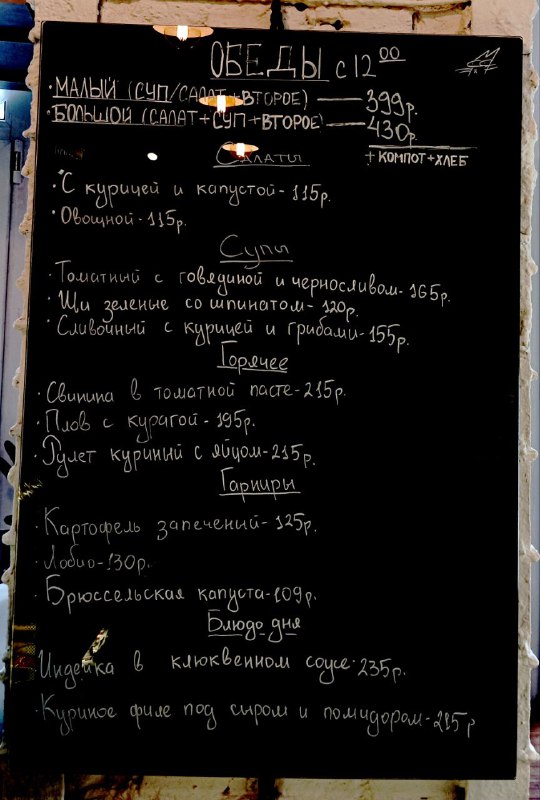 ОБЕДЫ с 12 00
• МАЛЫЙ (СУП/САЛАТ+ВТОРОЕ) — 399р.
• БОЛЬШОЙ (САЛАТ+СУП+ВТОРОЕ) — 430р.
+ КОМПОТ+ХЛЕБ
Салаты
• С курицей и капустой - 115р.
• Овощной - 115р.
Супы
• Томатный с говядиной и черносливом - 165р.
• Щи зеленые со шпинатом - 120р.
• Сливочный с курицей и грибами - 155р.
Горячее
• Свинина в томатной пасте - 215р.
• Плов с курагой - 195р.
• Рулет куриный с яйцом - 215р.
Гарниры
• Картофель запеченый - 125р.
• Лобио - 130р.
• Брюссельская капуста - 109р.
Блюдо дня
• Индейка в клюквенном соусе - 235р.
• Куриное филе под сыром и помидором - 215р